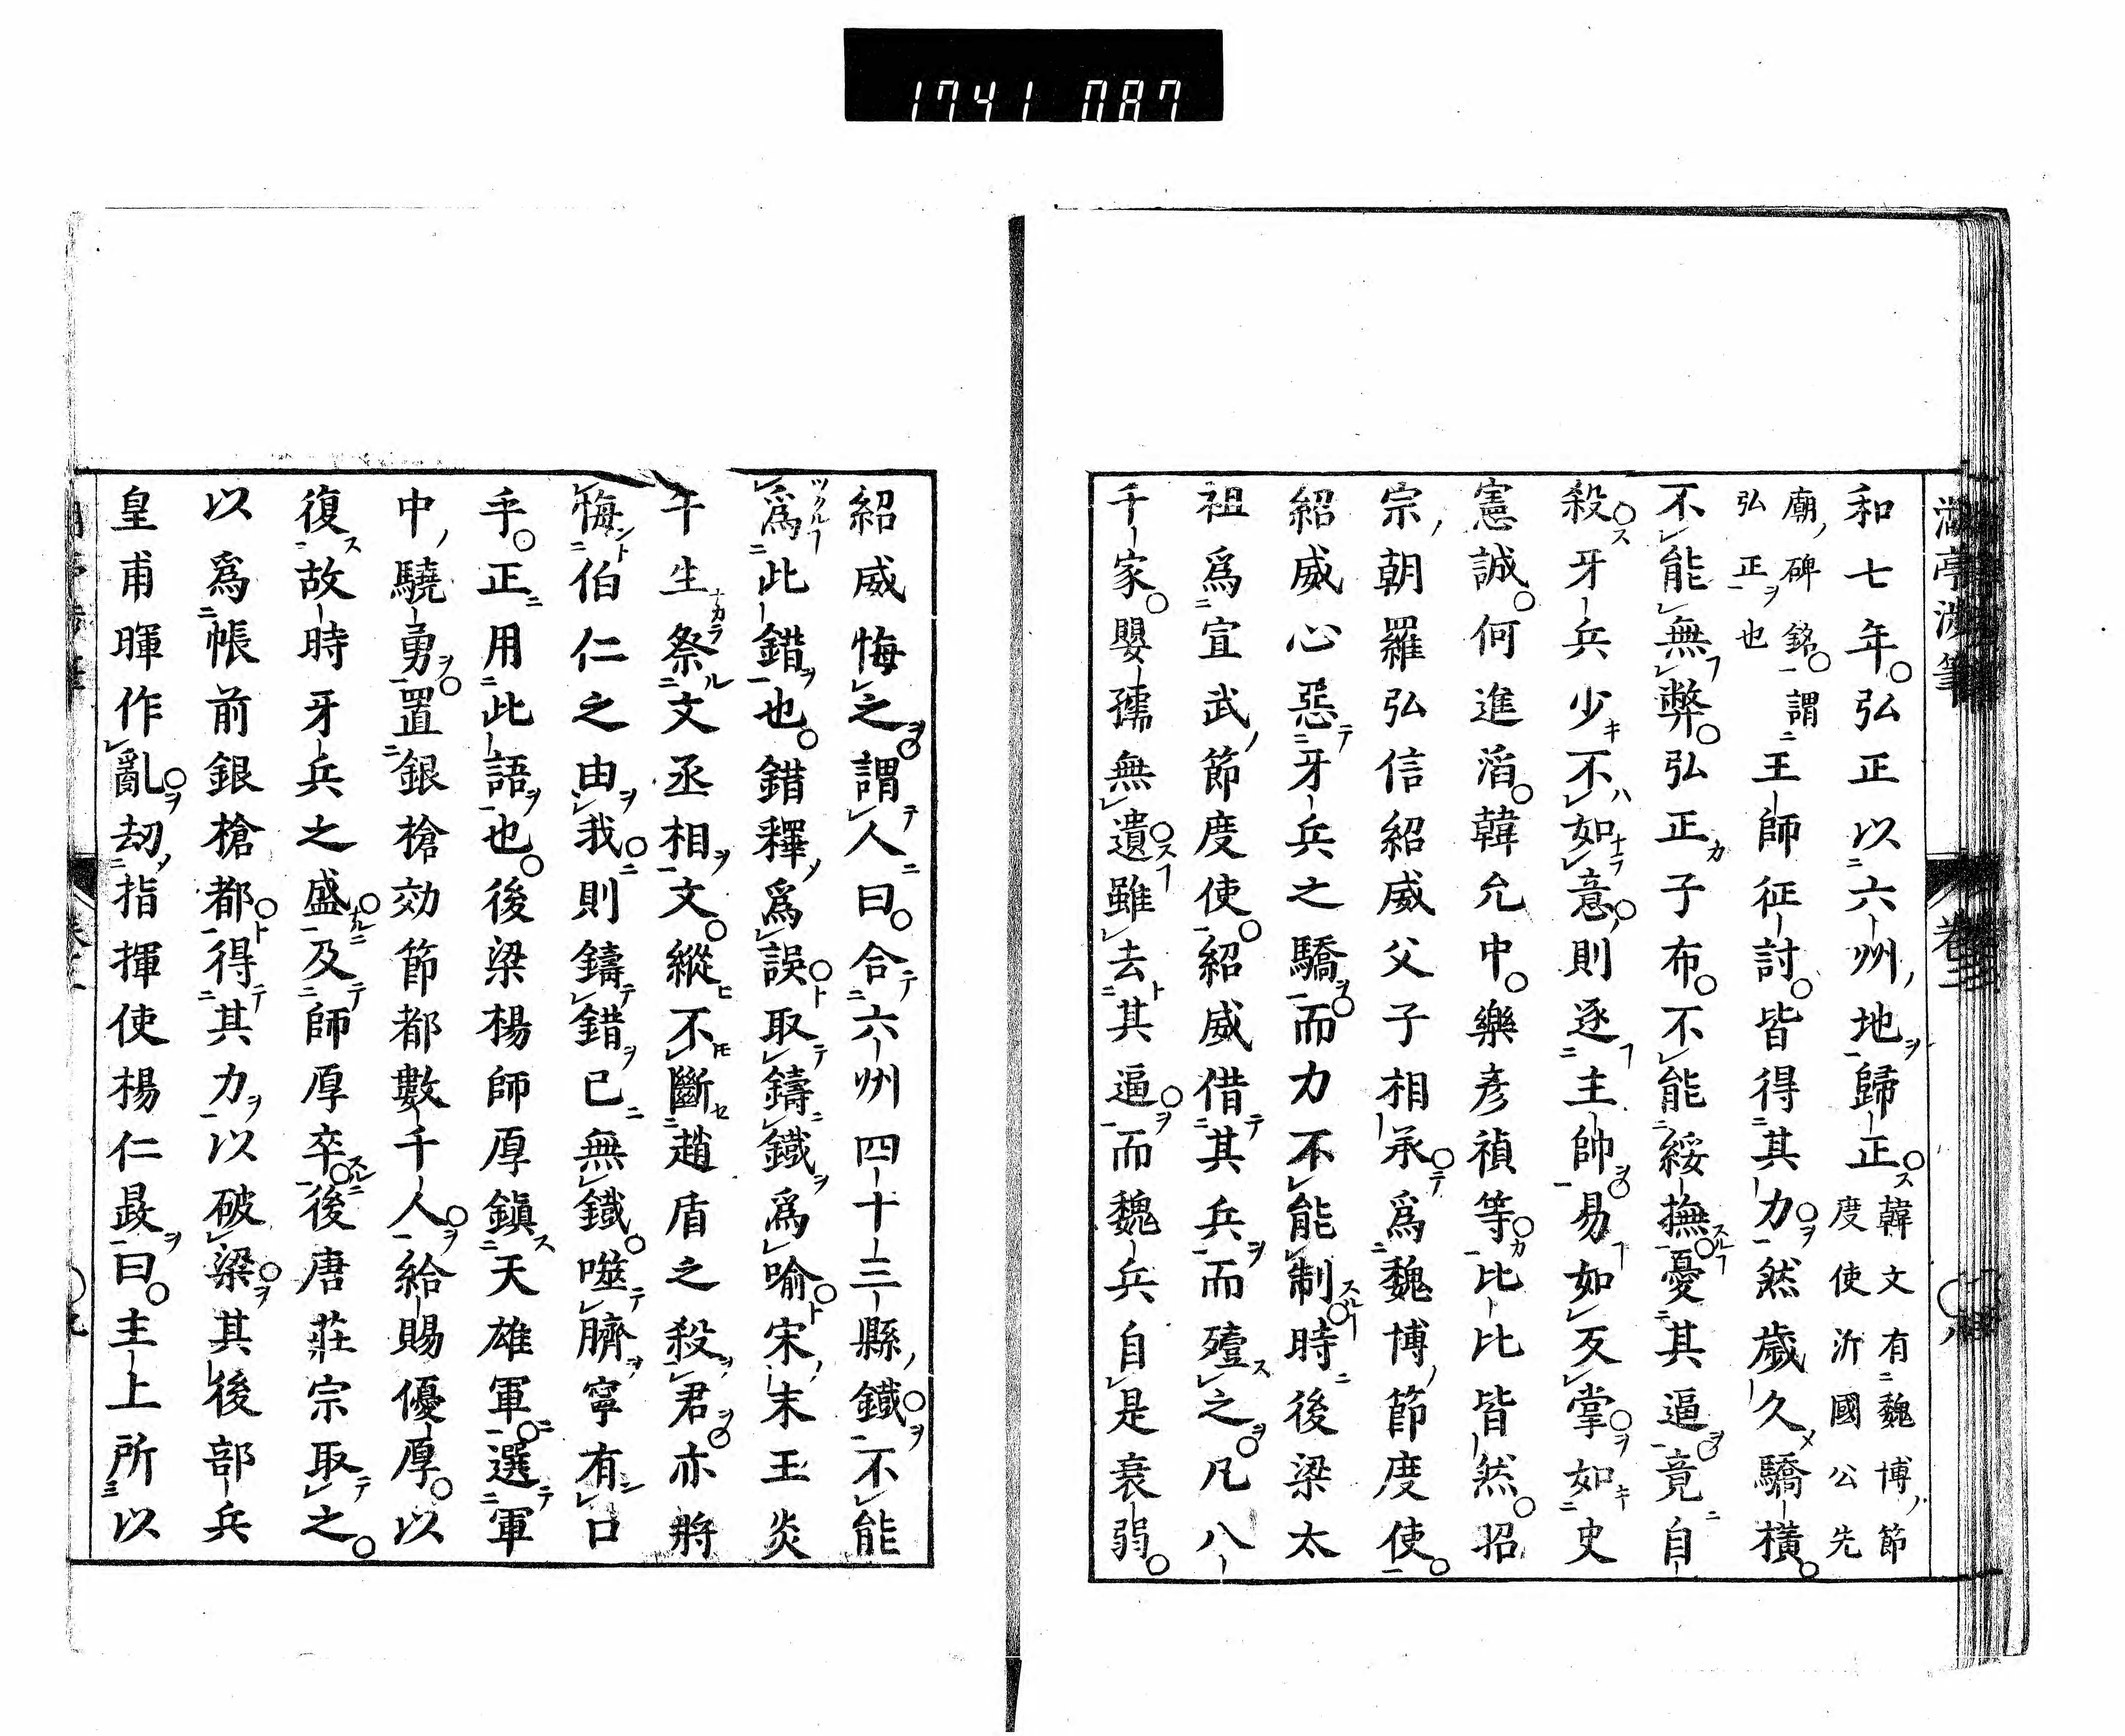 1741 087
湖亭渉筆
和七年。弘正以六州地歸正。韓文有魏博節度使沂國公先
廟碑銘。謂弘正也王師征討。皆得其力。然歲久驕橫。
不能無弊。弘正子布。不能綏撫。憂其逼。竟自
殺。牙兵少不如意。則逐主帥。易如反掌。如史
憲誠。何進滔。韓允中。樂彦禎等。比比皆然。昭
宗朝羅弘信紹威父子相承。爲魏博節度使。
紹威心惡牙兵之驕。而力不能制。時後梁太
祖爲宣武節度使。紹威借其兵而殪之。凡八
千家。嬰孺無遺。雖去其逼。而魏兵自是衰弱。
紹威悔之。謂人曰。合六州四十三縣鐵。不能
爲此錯也。錯釋爲誤。取鑄鐵爲喩。宋末王炎
午生祭文丞相文。縱不斷趙盾之殺君。亦將
悔伯仁之由我。則鑄錯已無鐵。噬臍寧有口
乎。正用此語也。後梁楊師厚鎭天雄軍。選軍
中驍勇。置銀槍効節都數千人。給賜優厚。以
復故時牙兵之盛。及師厚卒。後唐莊宗取之。
以爲帳前銀槍都。得其力。以破梁。其後部兵
皇甫暉作亂。刧指揮使楊仁晸曰。主上所以